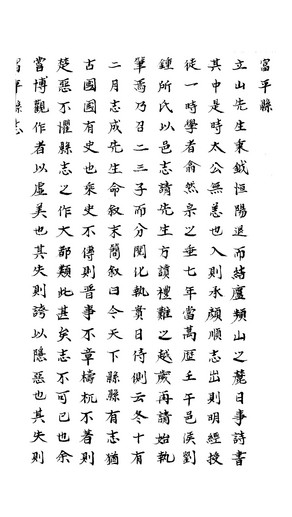 富平縣
立山先生秉鉞恒陽退而結廬頻山之麓日事詩書
其中是時太公無恙也入則承顏順志出則明經授
徒一時學者翕然宗之垂七年當萬歷壬午邑侯劉
鍾所氏以邑志請先生方讀禮難之越歲再請始執
筆焉乃召二三子而分閱化執贄日侍側云冬十有
二月志成先生命敘末簡敘曰今天下縣縣有志猶
古國國有史也乘史不傳則晋事不章檮杌不著則
楚惡不懼縣志之作大都類此甚矣志不可已也余
嘗博觀作者以虛美也其失則誇以隱惡也其失則
富平縣志